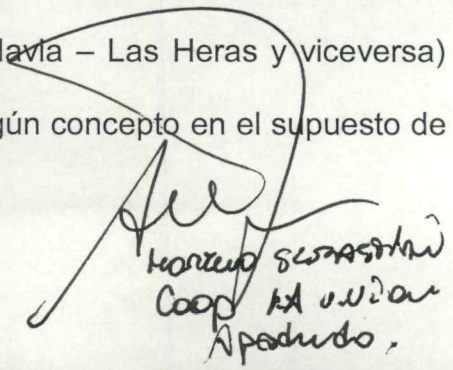 davia – Las Heras y viceversa)
gún concepto en el supuesto de
Moreno Sebastián
Coop LA UNION
Apoderado.